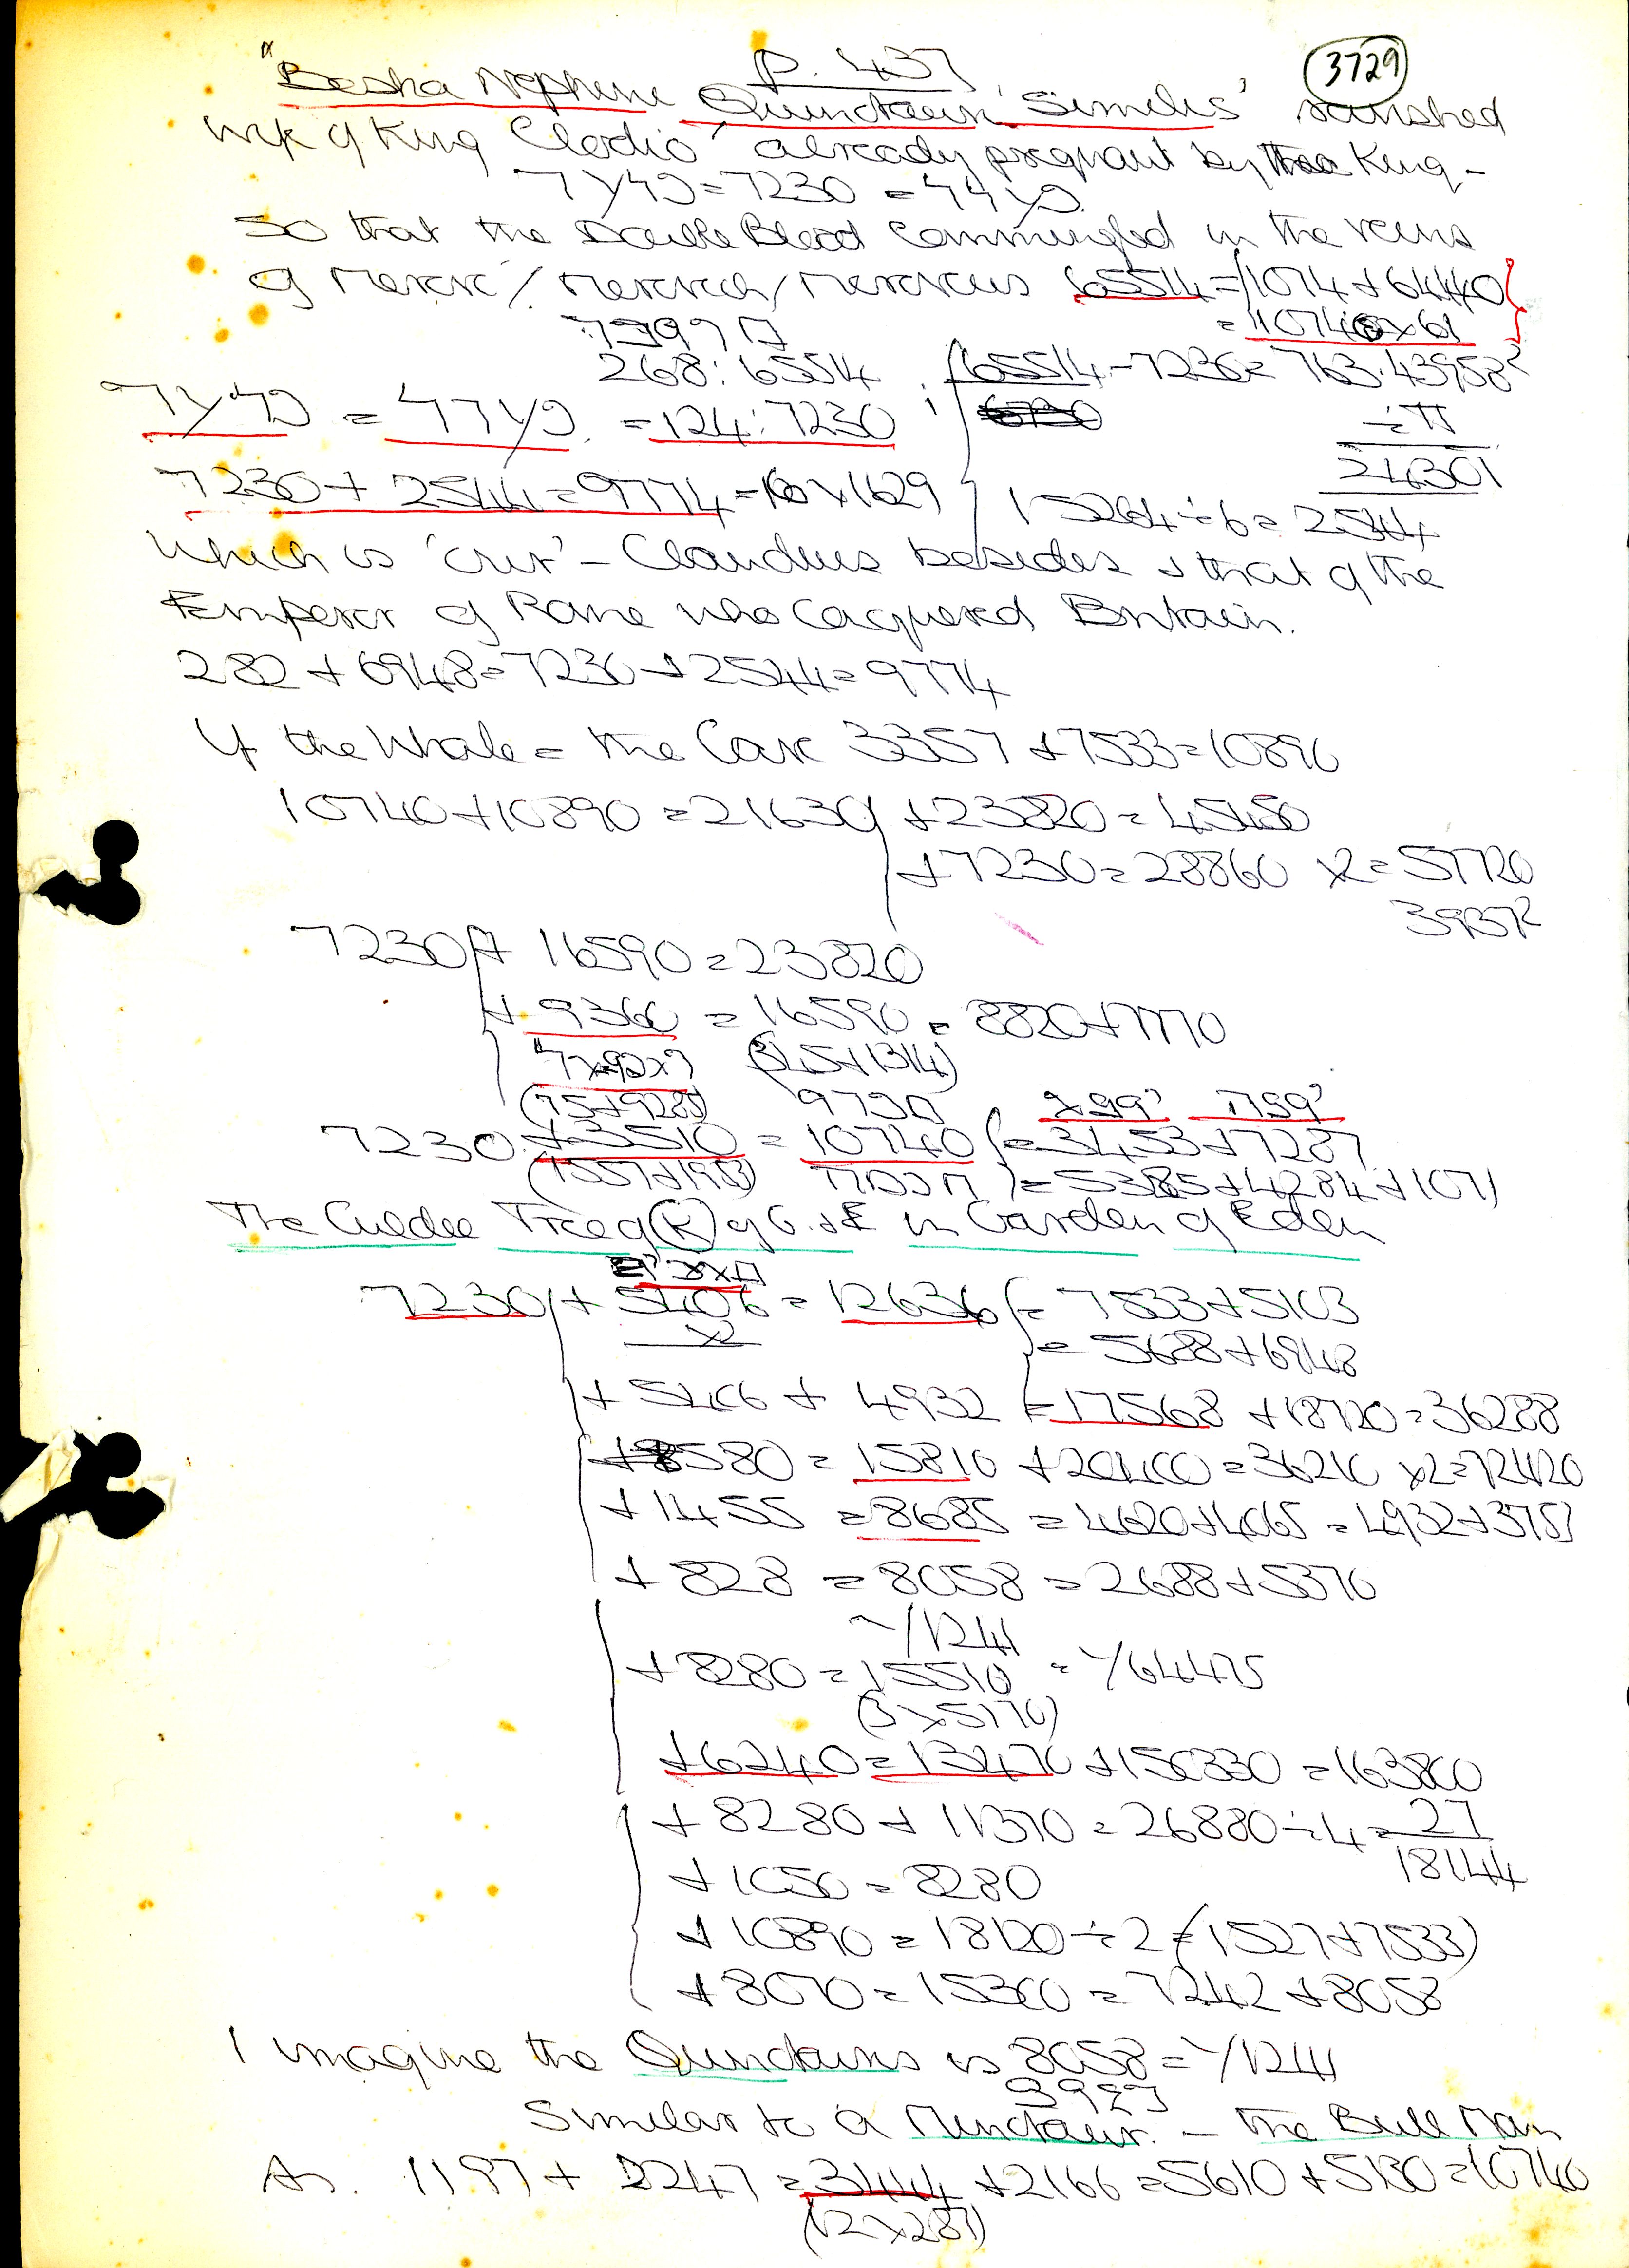 p. 437
3729
"Bestia Neptuni Quinotauri Similis' ravished
wife of King 'Clodio' already pregnant by the King -
= 7230 =
so that the Double Blood commingled in the veins
of Merovic / Merovech / Meroveus 65514 = 1074 + 64440
= 10740 x 61
268 : 65514
65514 - 7230 = 763.43958²
÷ π
24301
= = 124 : 7230
7230 + 2544 = 9774 = 6 x 1629
15264 ÷ 6 = 2544
which is 'our' - Claudius besides & that of the
Emperor of Rome who Conquered Britain.
282 + 6948 = 7230 + 2544 = 9774
If the Whale = the Cave 3357 + 7533 = 10890
10740 + 10890 = 21630 + 23820 = 45450
+ 7230 = 28860 x2 = 57720
39372
7230 + 16590 = 23820
+ 9360 = 16590 = 8820 + 7770
(345 + 1314)
(75 + 9285)
7230 + 3510 = 10740 = 3453 + 7287
(1557 + 1953) = 5385 + 4284 + 1071
The Culdee Tree of (K) of G. & E in Garden of Eden
7230 + 5406 = 12636 = 7533 + 5103
x2 = 5688 + 6948
+ 5406 + 4932 = 17568 + 18720 = 36288
+ 8580 = 15810 + 20400 = 36210 x2 = 72420
+ 1455 = 8685 = 4620 + 4065 = 4932 + 3753
+ 828 = 8058 = 2688 + 5370
√1241
+ 8280 = 15510 = √64475
(3 x 5170)
+ 6240 = 13470 + 150330 = 163800
+ 8280 + 11370 = 26880 ÷ 4 = 27
18144
+ 1050 = 8280
+ 10890 = 18120 ÷ 2 = (1527 + 7533)
+ 8070 = 15300 = 7242 + 8058
I imagine the Quinotaurs is 8058 = √1241
Similar to a Minotaur. - the Bull Man
As. 1197 + 2247 = 3444 + 2166 = 5610 + 5130 = 10740
(12 x 287)